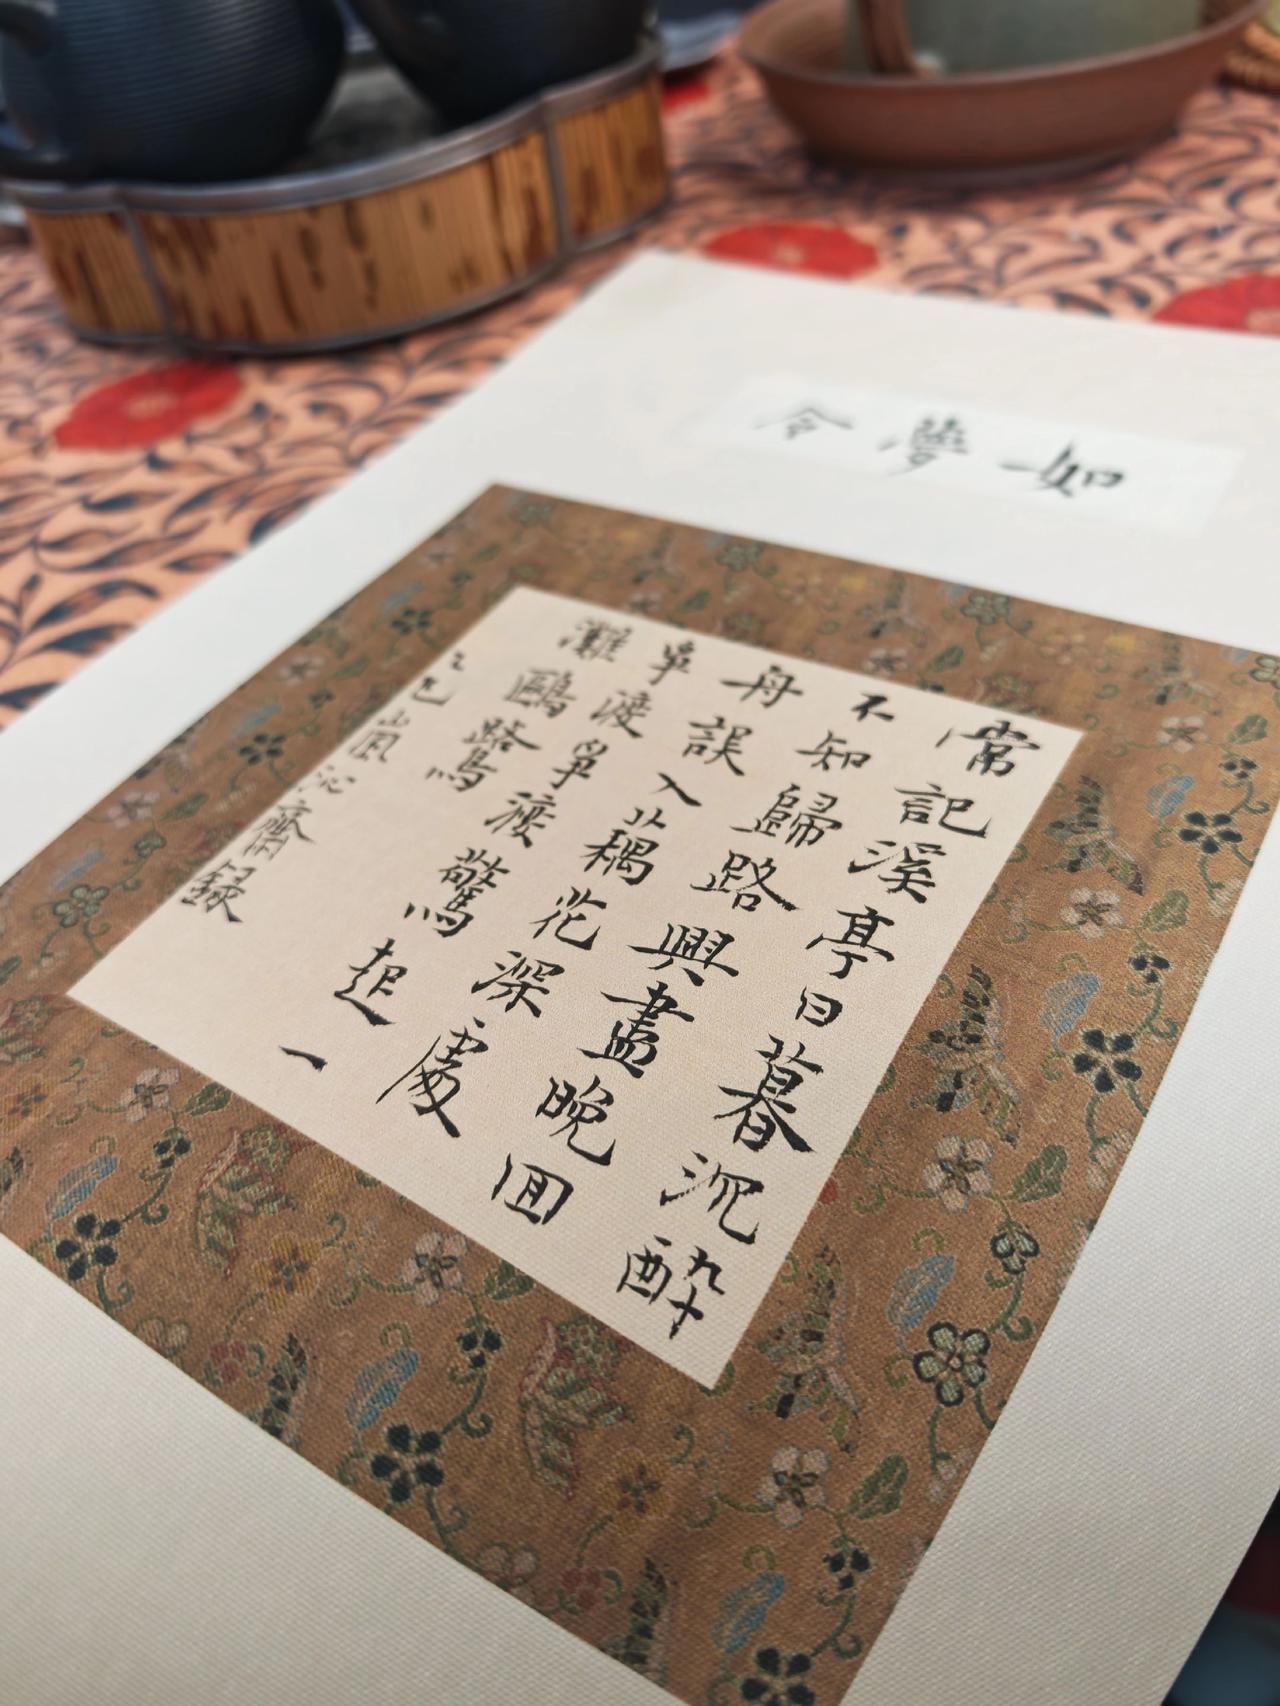 如夢令
常記溪亭日暮沉酔
不知歸路興盡晚囬
舟誤入藕花深處
爭渡爭渡驚起一
灘鷗鷺
乙巳嵐沁齋録